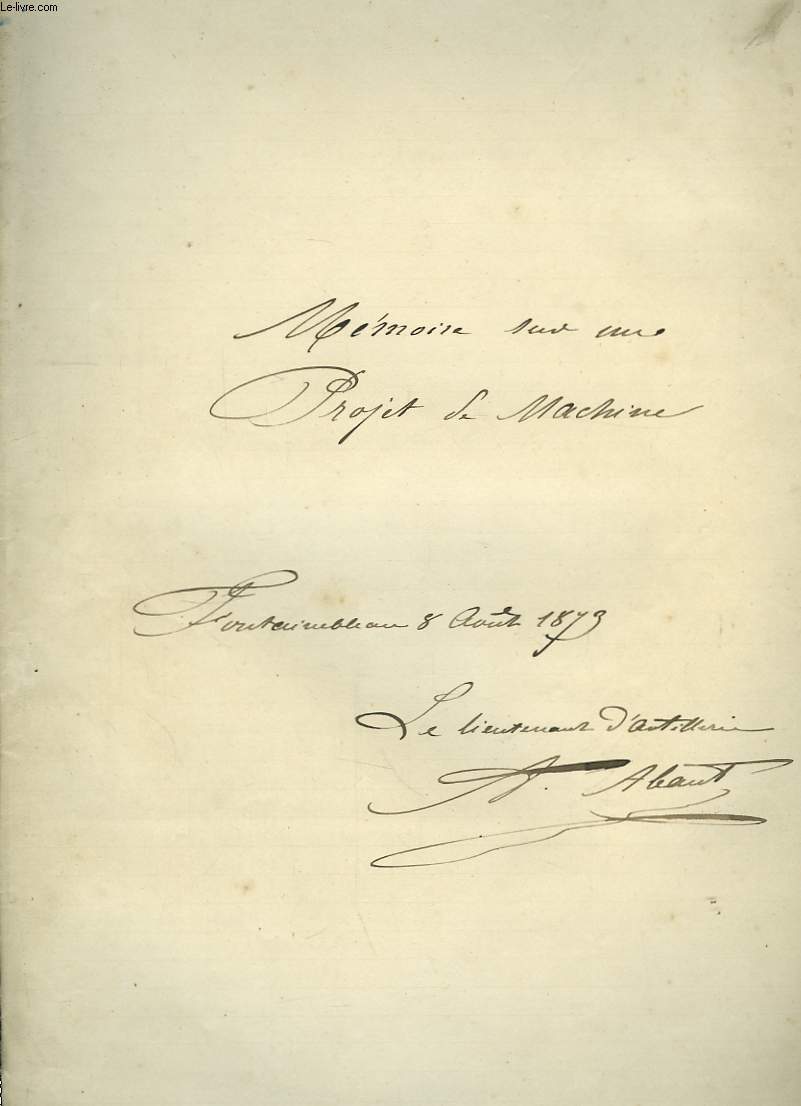 Le-livre.com
Mémoire sur une
Projet de Machine
Fontainebleau 8 Août 1873
Le lieutenant d'artillerie
A. Abaut